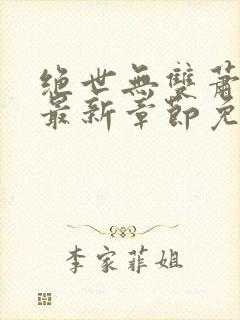 绝世無雙蕭
最新章節免
李家菲姐